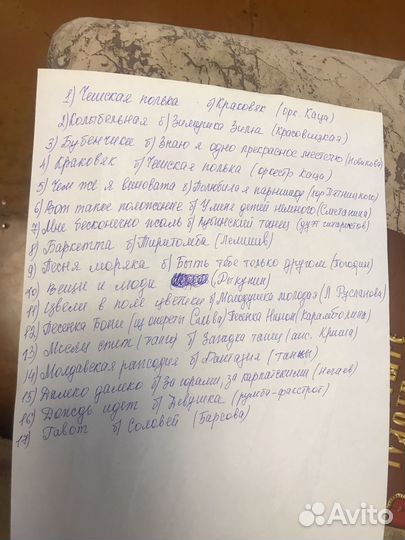 1) Чешская полька б) Краковяк (орк. Каца)
2) Колыбельная б) Зимушка Зима (Красовицкая)
3) Бубенчики б) Знаю я одно прекрасное местечко (Новикова)
4) Краковяк б) Чешская полька (оркестр Каца)
5) Чем же я виновата б) Полюбила я парнишку (хор Пятницкого)
6) Вот такое положение б) У меня детей немного (Сметанина)
7) Мне бесконечно жаль б) Кубинский танец (дуэт гитаристов)
8) Баркетта б) Тиритомба (Лемишев)
9) Песня моряка б) Быть тебе только другом (Погодин)
10) Вещи и люди (Рыкунин)
11) Цвели в поле цветики б) Молодушка молодая (Л. Русланова)
12) Песенка Бони (из оперетты Сильва) Песенка Нинон (Карамболина)
13) Месяц спит (танец) б) Загадка танец (анс. Криша)
14) Молдавская рапсодия б) Фантазия (танцы)
15) Далеко далеко б) За горами, за карпатскими (Нечаев)
16) Дождь идет б) Девушка (румба-фокстрот)
17) Гавот б) Соловей (Барсова)
Avito